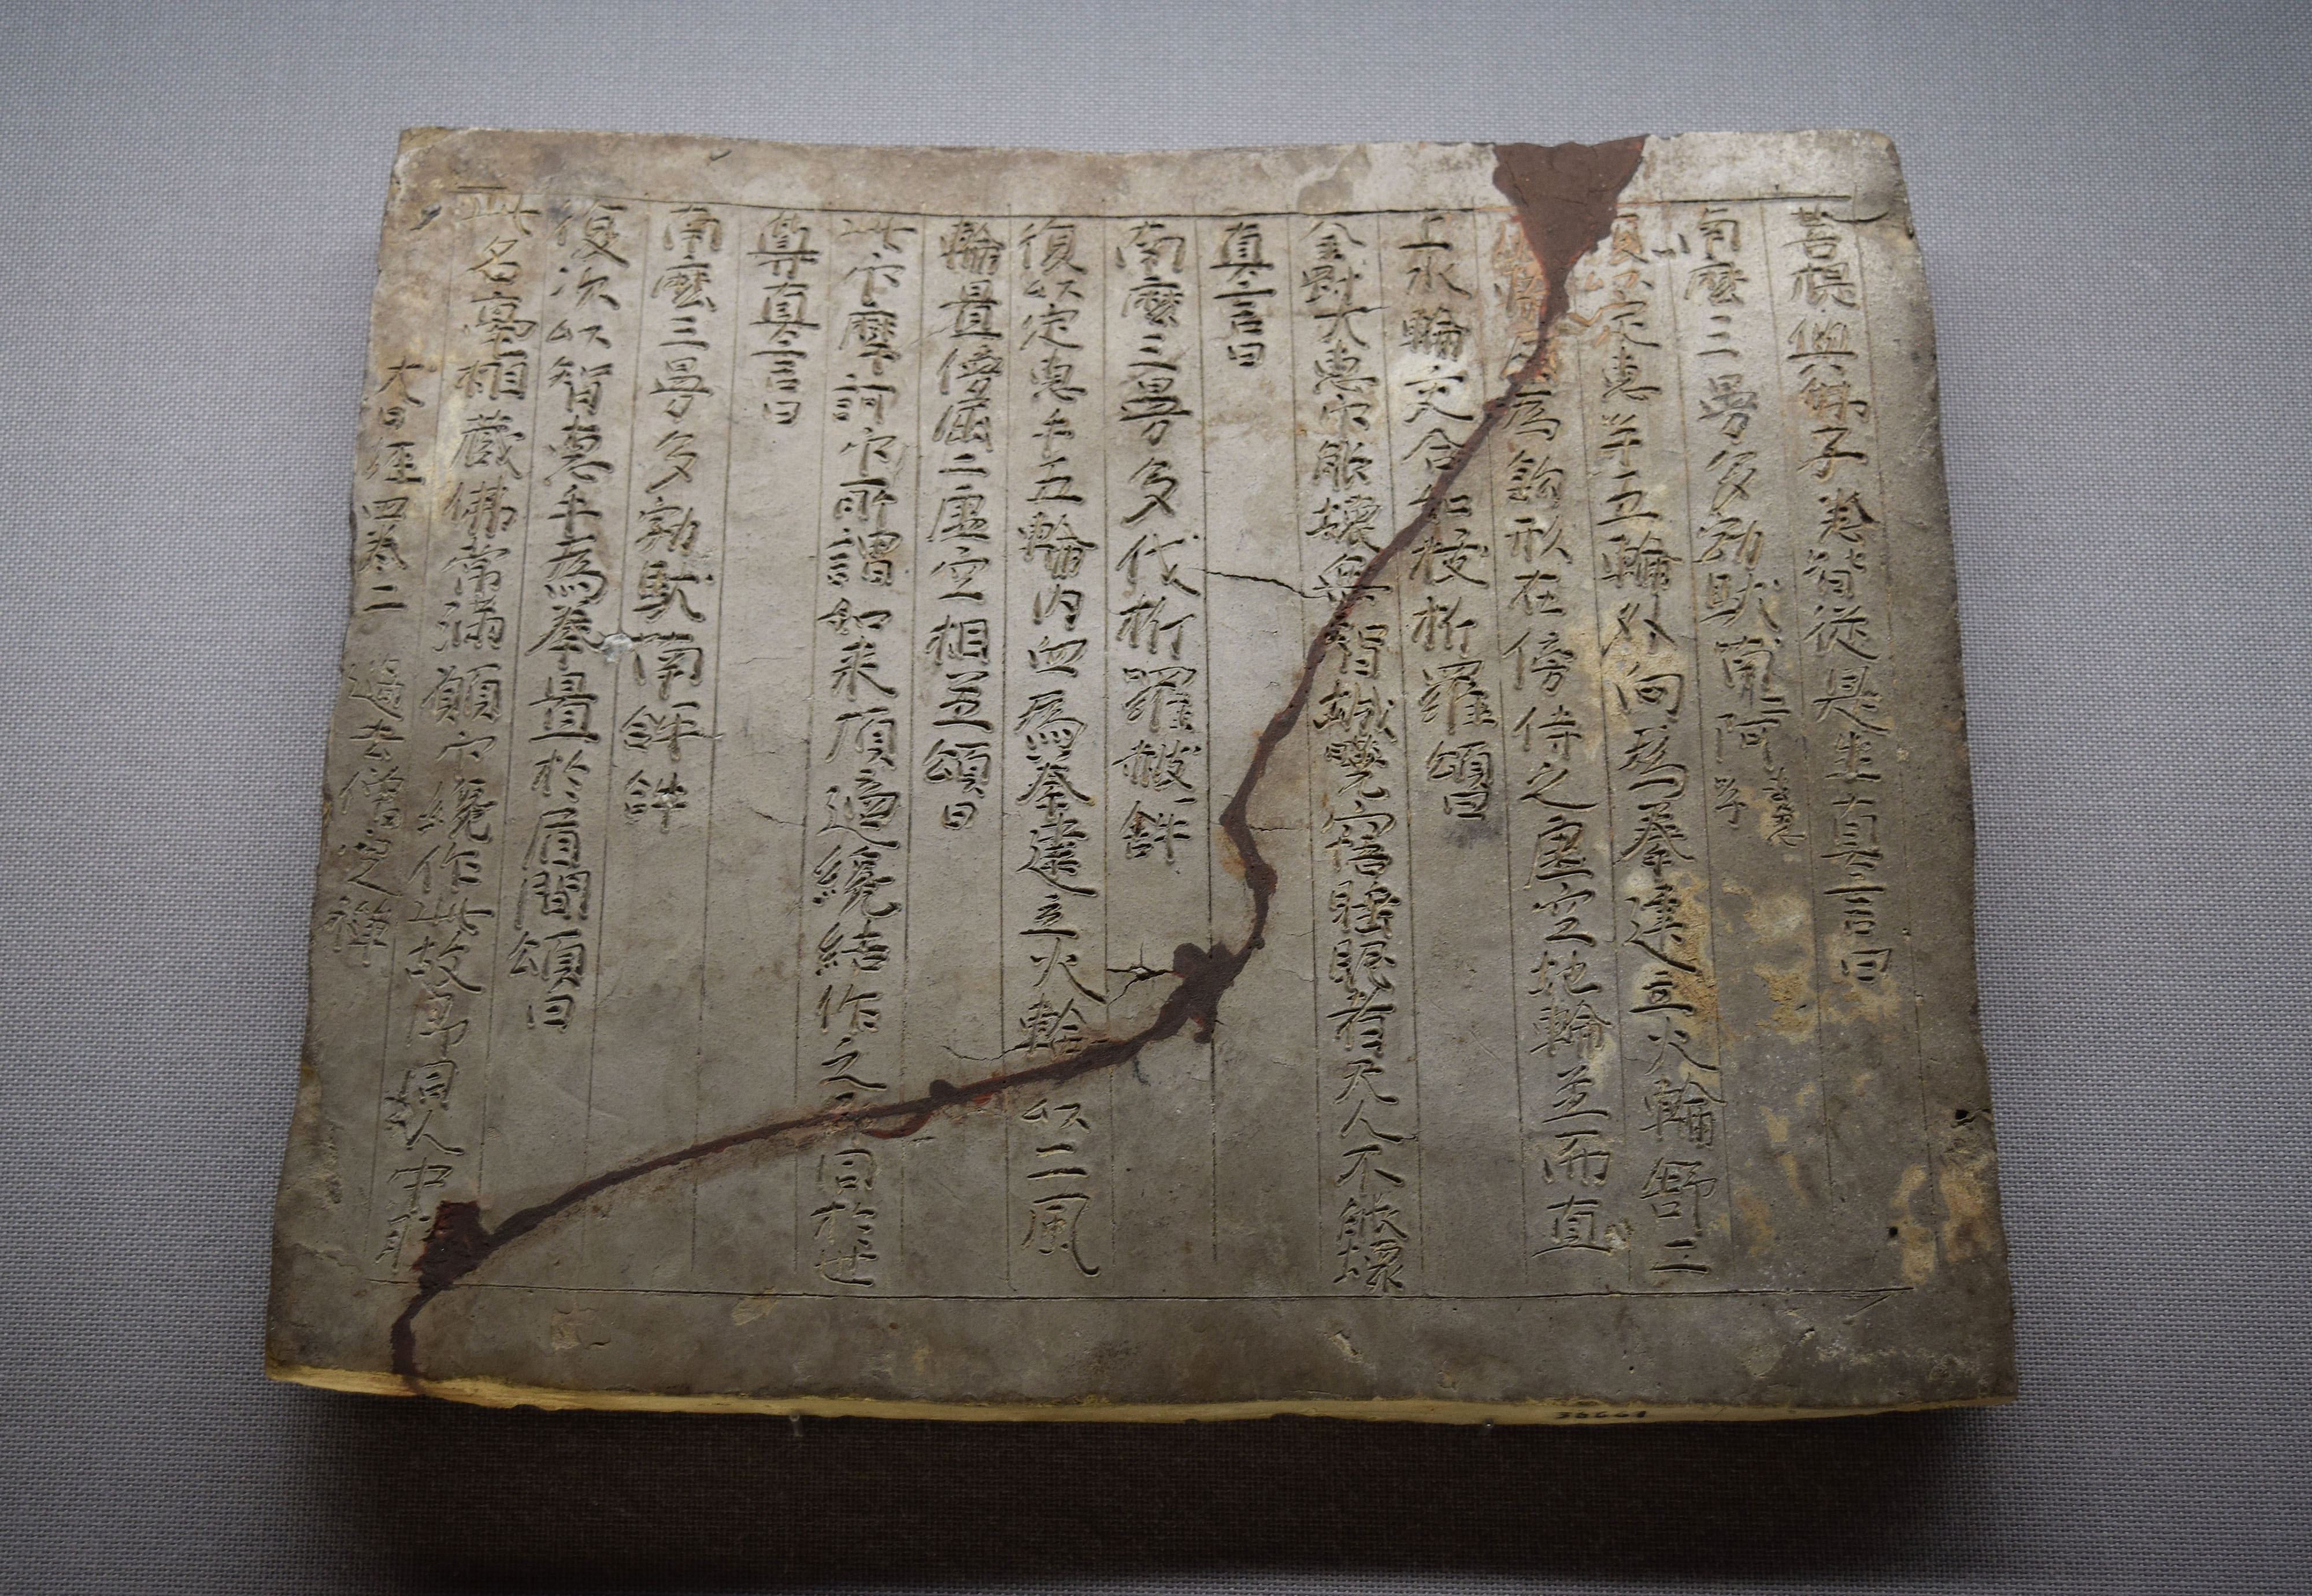 菩提與佛子悉皆從是生真言曰
南麼三曼多勃馱喃阿急呼
復以定惠手五輪外向為拳建立火輪舒二
風輪屈為鉤形在傍侍之虛空地輪並而直
上水輪交合如拔折羅頌曰
金剛大惠印能壞無智城曉寤睡眠者天人不能壞
真言曰
南麼三曼多伐折羅赧𤙖
復以定惠手五輪內向為拳建立火輪以二風
輪置傍屈二虛空相並頌曰
此印摩訶印所謂如來頂適纔結作之即同於世
尊真言曰
南麼三曼多勃馱喃𤙖𤙖
復次以智惠手為拳置於眉間頌曰
此名毫相藏佛常滿願印纔作此故即同人中勝
大日經四卷二